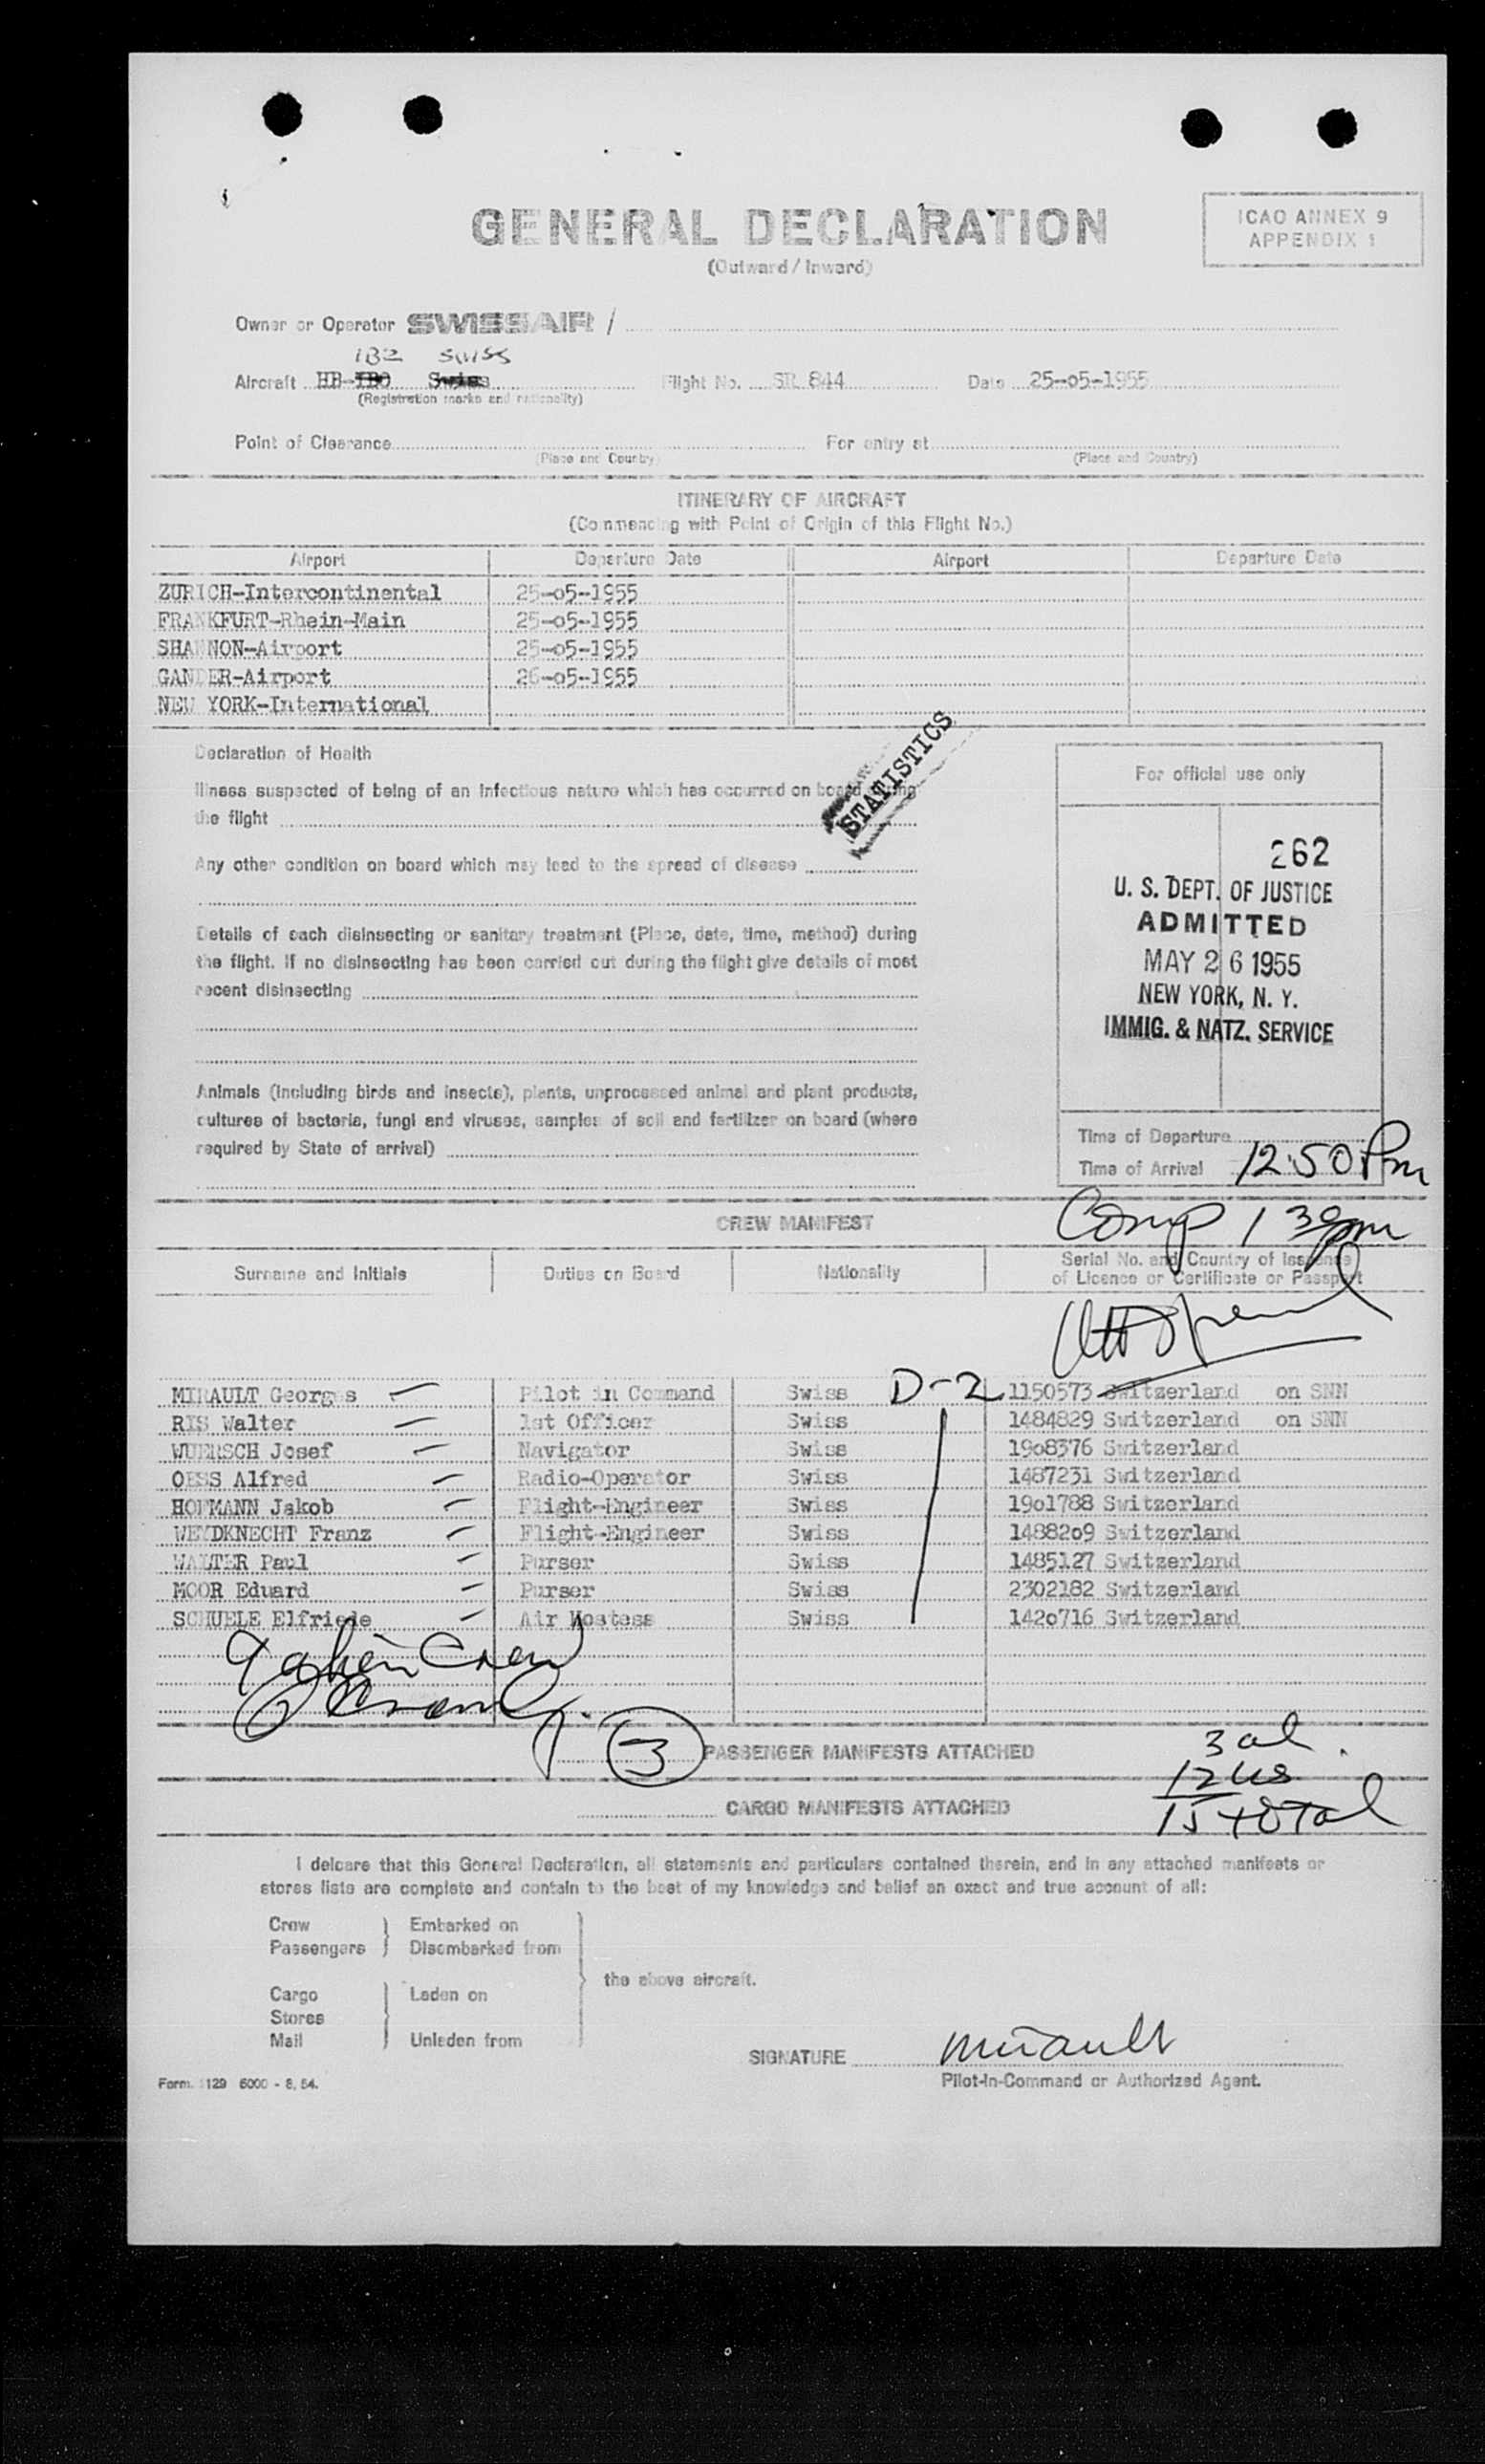 GENERAL DECLARATION
(Outward / Inward)
ICAO ANNEX 9
APPENDIX 1
Owner or Operator SWISSAIR /
IBZ SWISS
Aircraft HB-IBO Swiss Flight No. SR 844 Date 25-05-1955
(Registration marks and nationality)
Point of Clearance For entry at
(Place and Country) (Place and Country)
ITINERARY OF AIRCRAFT
(Commencing with Point of Origin of this Flight No.)
Airport Departure Date Airport Departure Date
ZURICH-Intercontinental 25-o5-1955
FRANKFURT-Rhein-Main 25-o5-1955
SHANNON-Airport 25-o5-1955
GANDER-Airport 26-o5-1955
NEW YORK-International
Declaration of Health
Illness suspected of being of an infectious nature which has occurred on board during
the flight
STATISTICS
Any other condition on board which may lead to the spread of disease
Details of each disinsecting or sanitary treatment (Place, date, time, method) during
the flight. If no disinsecting has been carried out during the flight give details of most
recent disinsecting
Animals (including birds and insects), plants, unprocessed animal and plant products,
cultures of bacteria, fungi and viruses, samples of soil and fertilizer on board (where
required by State of arrival)
For official use only
262
U. S. DEPT. OF JUSTICE
ADMITTED
MAY 26 1955
NEW YORK, N. Y.
IMMIG. & NATZ. SERVICE
Time of Departure
Time of Arrival 12:50 Pm
Comp 1 30 pm
CREW MANIFEST
Surname and Initials Duties on Board Nationality Serial No. and Country of Issuance
of Licence or Certificate or Passport
MIRAULT Georges Pilot in Command Swiss D-2 1150573 Switzerland on SNN
RIS Walter 1st Officer Swiss 1484829 Switzerland on SNN
WUERSCH Josef Navigator Swiss 19o8376 Switzerland
OESS Alfred Radio-Operator Swiss 1487231 Switzerland
HOFMANN Jakob Flight-Engineer Swiss 19o1788 Switzerland
WEYDKNECHT Franz Flight-Engineer Swiss 14882o9 Switzerland
WALTER Paul Purser Swiss 1485127 Switzerland
MOOR Eduard Purser Swiss 2302182 Switzerland
SCHUELE Elfriede Air Hostess Swiss 142o716 Switzerland
9 alien Crew
3 PASSENGER MANIFESTS ATTACHED
3 al.
12 US
15 total
CARGO MANIFESTS ATTACHED
I delcare that this General Declaration, all statements and particulars contained therein, and in any attached manifests or
stores lists are complete and contain to the best of my knowledge and belief an exact and true account of all:
Crew Embarked on
Passengers Disembarked from
the above aircraft.
Cargo Laden on
Stores
Mail Unladen from
SIGNATURE Mirault
Pilot-in-Command or Authorized Agent.
Form. 1129 6000 - 8. 54.